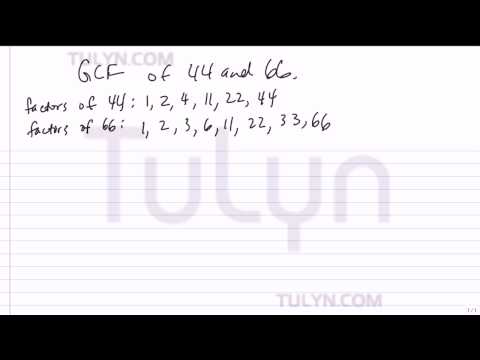 TULYN.COM
GCF of 44 and 66.
factors of 44: 1, 2, 4, 11, 22, 44
factors of 66: 1, 2, 3, 6, 11, 22, 33, 66
TuLyn
TULYN.COM
1/1